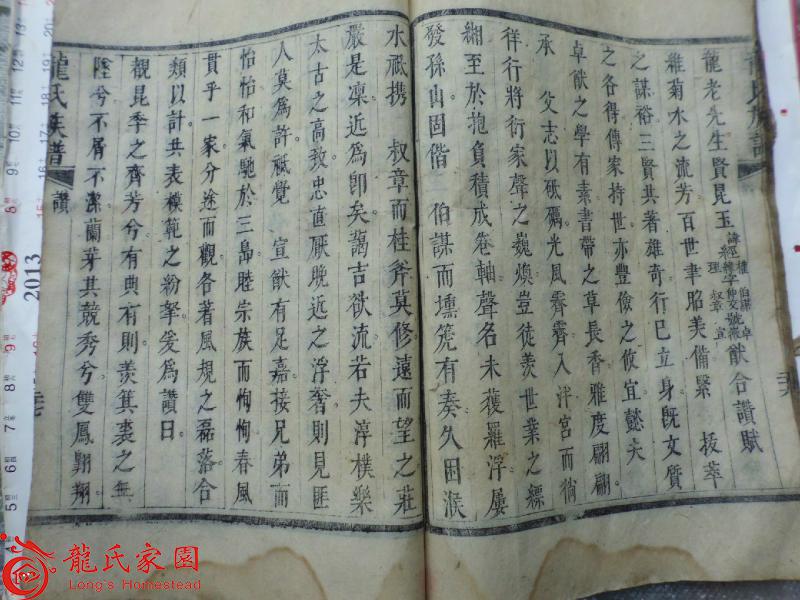 龍氏族譜
龍老先生賢昆玉諱經權緯理字伯謀仲文叔章號卓猷薇猷宣猷合讚賦
維菊水之流芳百世聿昭美備緊 拔萃
之謀裕三賢共著雄奇行已立身既文質
之各得傳家持世亦豐儉之攸宜懿夫
卓猷之學有素書帶之草長香雅度翩翩
承 父志以砥礪光風霽霽入泮宮而徜
徉行將衍家聲之巍煥豈徒羨世業之縹
緗至於抱負積成卷軸聲名未獲羅浮屢
發孫山固偕 伯謀而壎箎有奏久困濮
水祇携 叔章而桂斧莫修遠而望之莊
嚴是凜近為即矣藹吉欲流若夫淳樸樂
太古之高致忠直厭晚近之浮奢則見匪
人莫為許祇覺 宣猷有足嘉接兄弟而
怡怡和氣馳於三島睦宗族而恂恂春風
貫乎一家分途而觀各著風規之磊落合
類以計共表模範之紛拏爰為讚曰
觀昆季之齊芳兮有典有則羨箕裘之無
墜兮不屑不潔蘭芽其競秀兮雙鳳翺翔
龍氏族譜
讚
2013
龍氏家園
Long's Homestead